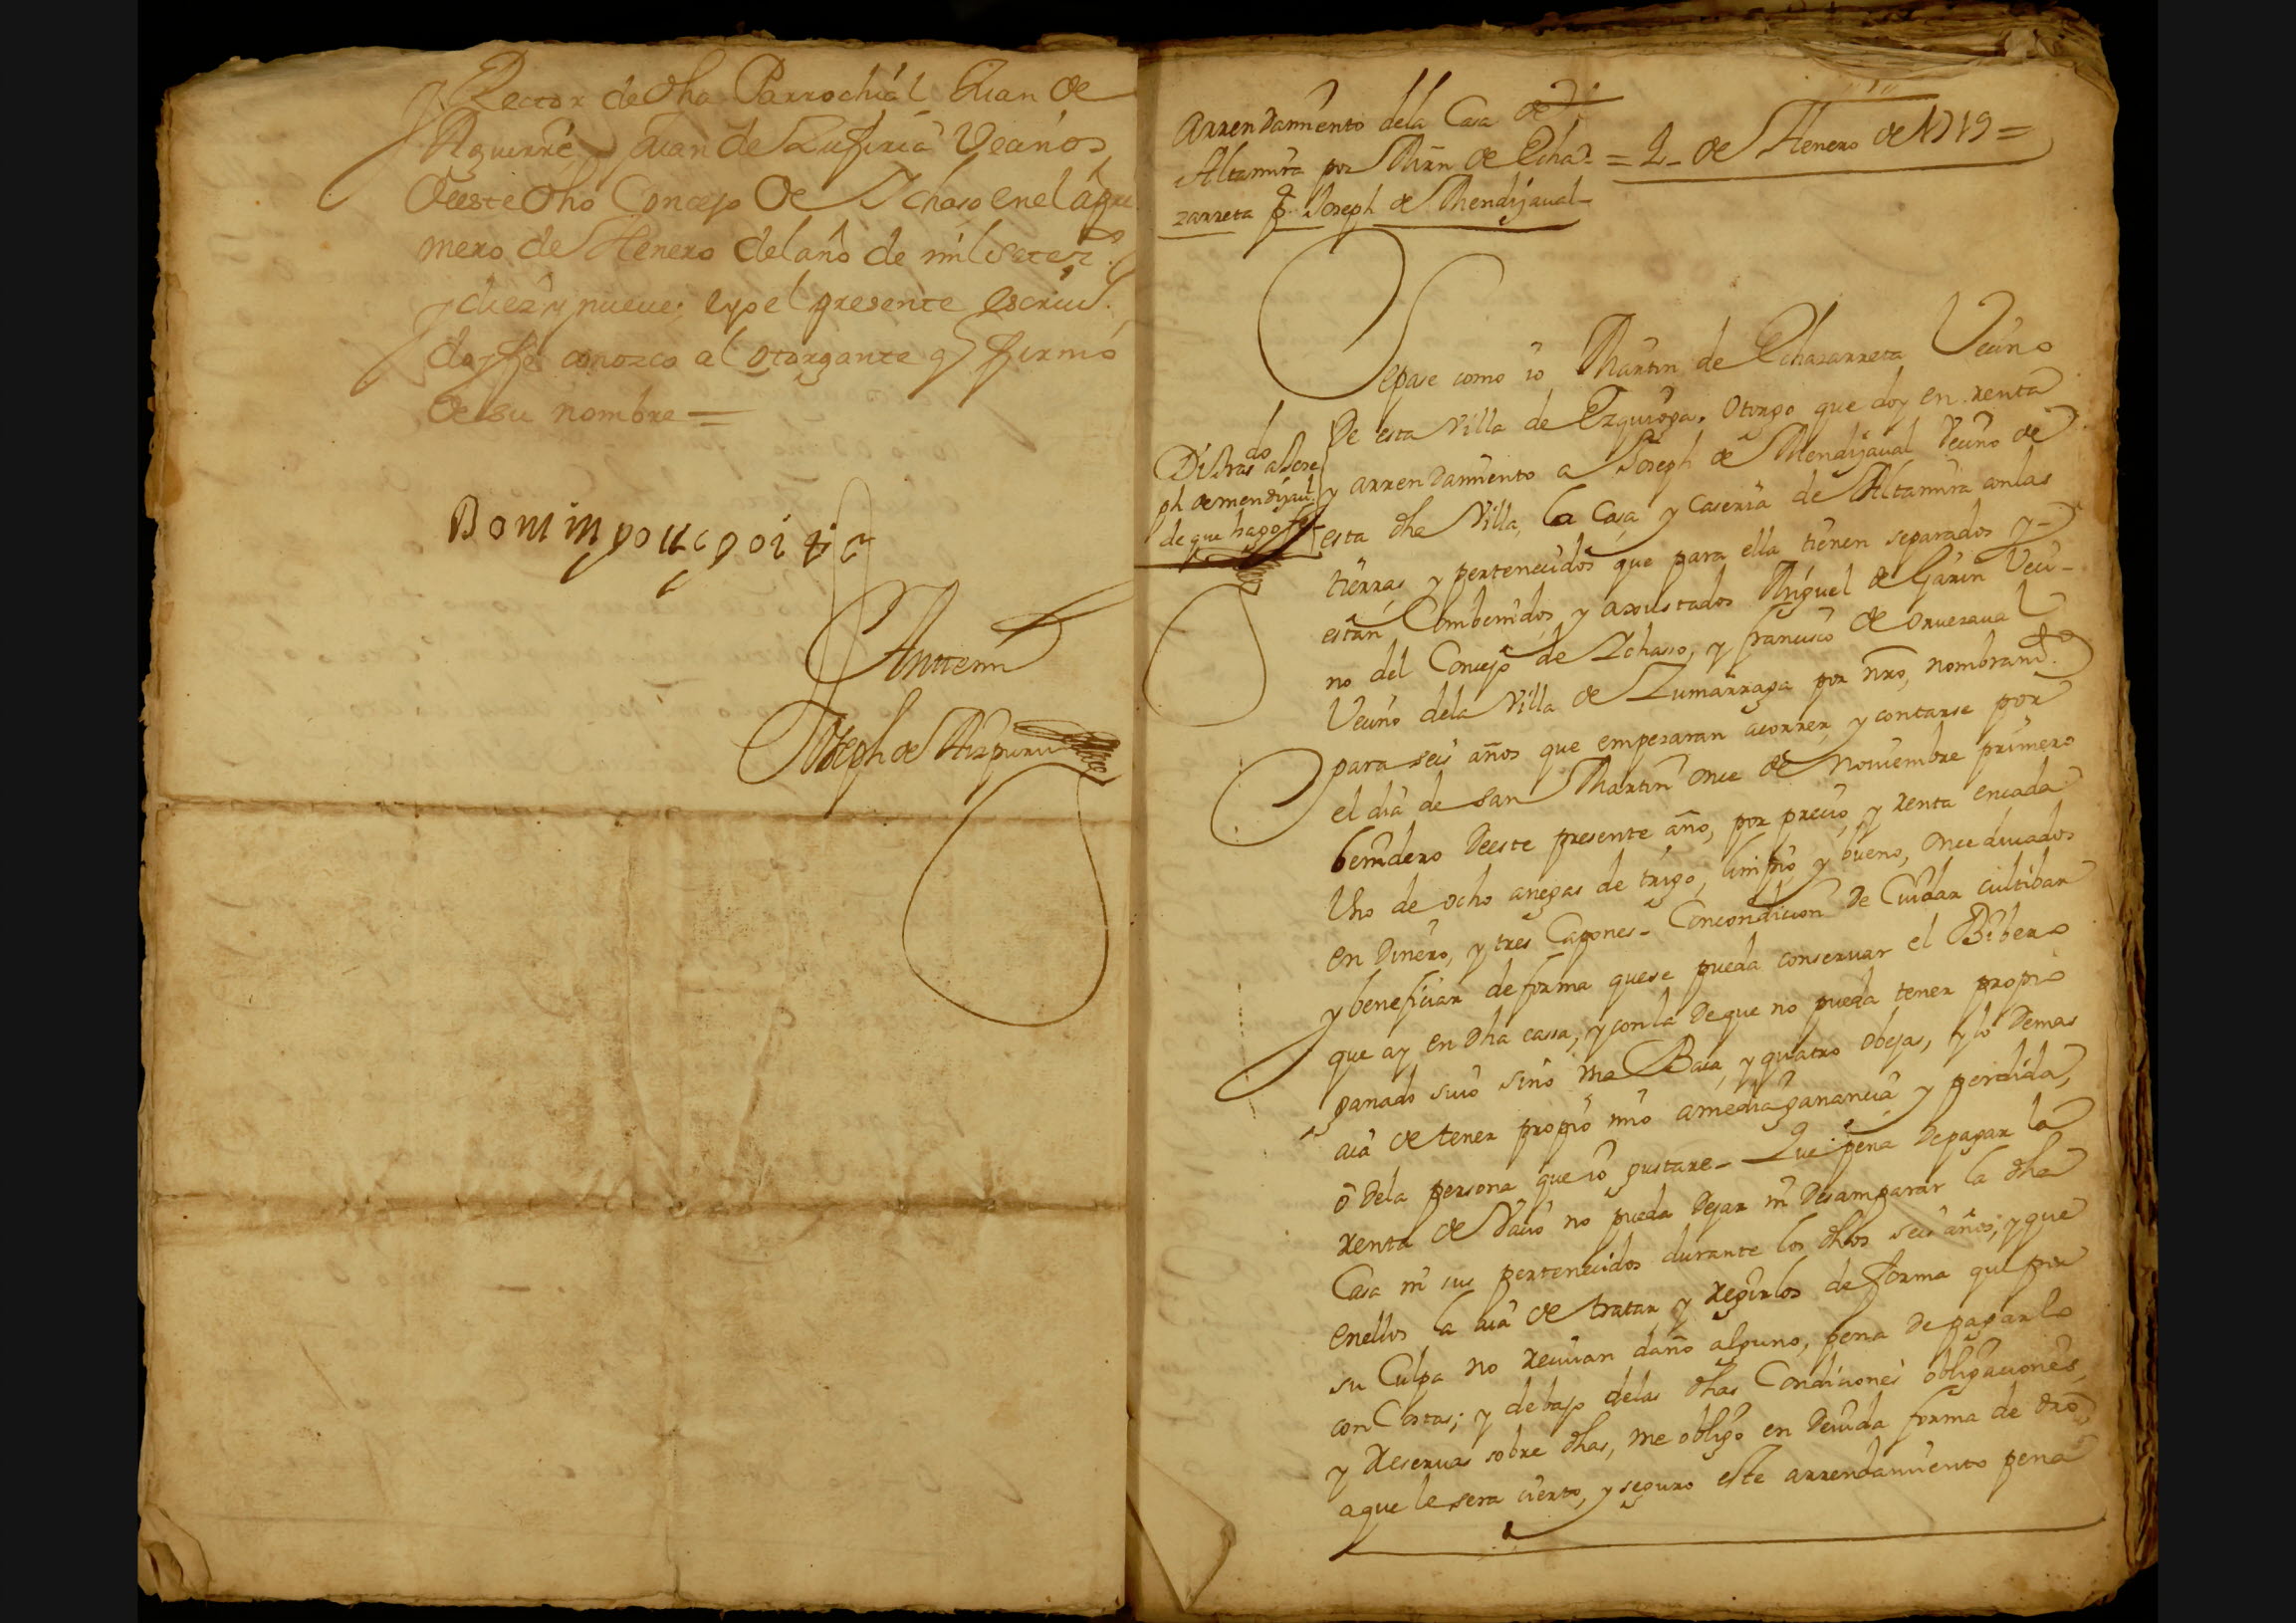 y Rector de dha Parrochial Juan de
Aguirre y Juan de Zufiria Vecinos
deeste dho Concejo de Ichaso en el a pri
mero de Henero del año de mil setez.
y diez y nueue; e yo el presente escriu.
doy fee conozco al otorgante q firmó
de su nombre =
Antemi
Joseph de Aizpuru
Arrendamiento dela Casa de
Altamira por Mrn de Echa-
zarreta p.ª Joseph de Mendijaual-
= 2 - de Henero de 1719 =
Sepase como io Martin de Echazarreta Vecino
De esta Villa de Ezquioga. Otorgo que doy en renta
y arrendamiento a Joseph de Mendijaual Vecino de
esta dha Villa, la Casa y Caseria de Altamira conlas
tierras y pertenecidos que para ella tienen separados y-
estan Combenidos y axustados Miguel de Garin Veci-
no del Concejo de Ichaso, y francisco de oruezaual
Vecino dela Villa de Zumarraga por nro, nombramto.
para seis años que empezaran acorrer y contarse por
el dia de san Martin onze de Nouiembre primero
benidero deeste presente año, por precio y renta encada
Uno de ocho anegas de trigo, limpio y bueno, onze ducados
en dinero, y tres Capones- Concondicion de Cuidar cultibar
y beneficiar de forma quese pueda conseruar el Bibero
que ay en dha cassa, y conla deque no pueda tener propio
ganado suio sino vna Baca, y quatro obejas, y lo demas
aia de tener propio mio amediaganancia y perdida,
ó dela persona que io gustare- Que pena depagar la
renta de Vacio no pueda dejar ni desamparar la dha
Casa ni sus pertenecidos durante los dhos seis años; y que
enellos la aia de tratar y regirlos de forma que por
su Culpa no reciuan daño alguno, pena de pagarlo
con Costas; y debajo delas dhas Condiciones obligaciones,
y reseruas sobre dhas, me obligo en deuida forma de dro,
a que le sera cierto, y seguro este arrendamiento pena
Di Tras.do a Jose
ph de mendijaul.
de que hago fe